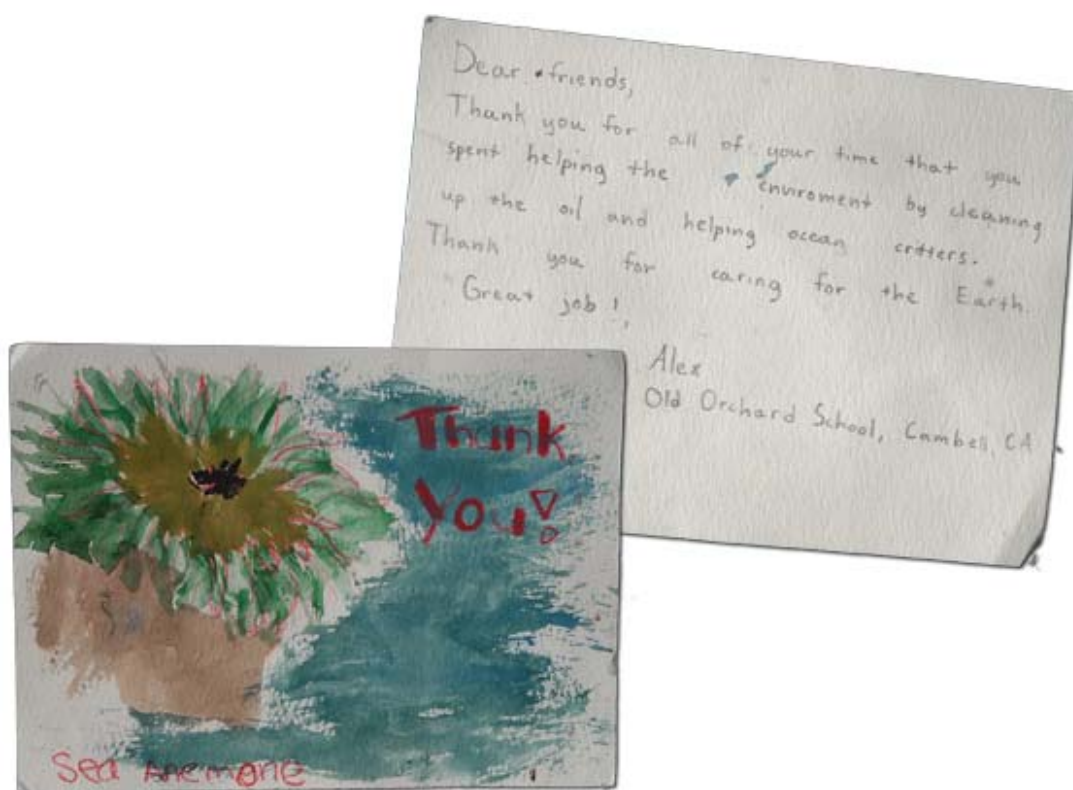 Dear friends,
Thank you for all of your time that you
spent helping the enviroment by cleaning
up the oil and helping ocean critters.
Thank you for caring for the Earth.
Great job!,
Alex
Old Orchard School, Cambell, CA
Thank
You!
Sea Anemone